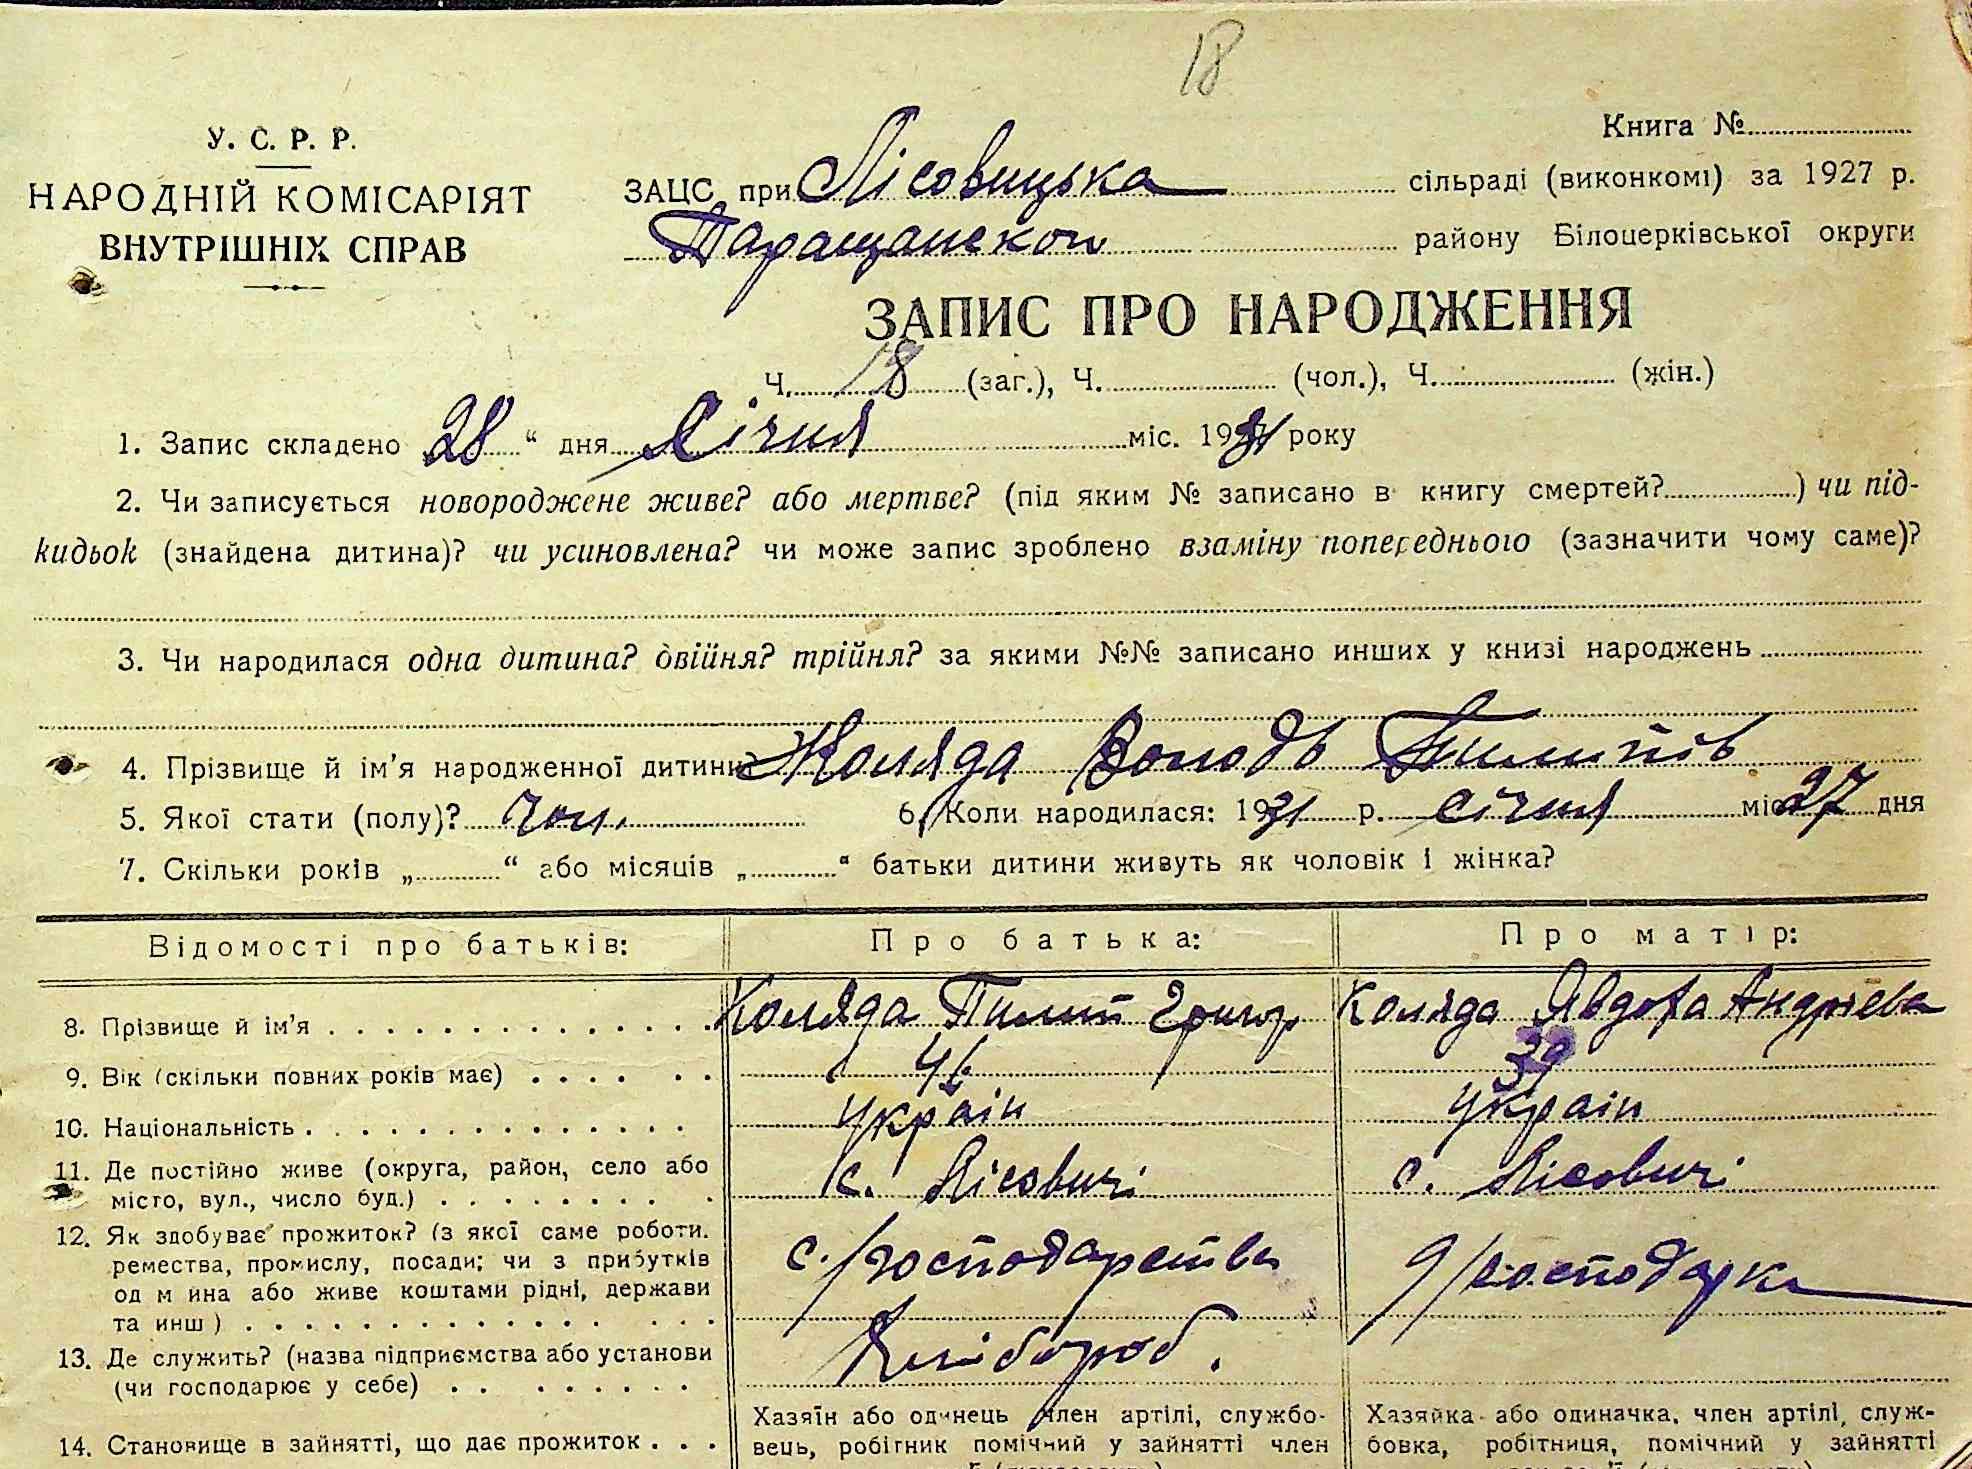 18
У. С. Р. Р.
НАРОДНІЙ КОМІСАРІЯТ
ВНУТРІШНІХ СПРАВ
Книга №
ЗАЦС при Лісовицька сільраді (виконкомі) за 1927 р.
Таращанской району Білоцерківської округи
ЗАПИС ПРО НАРОДЖЕННЯ
Ч. 18 (заг.), Ч. (чол.), Ч. (жін.)
1. Запис складено „28“ дня Січня міс. 1931 року
2. Чи записується новороджене живе? або мертве? (під яким № записано в книгу смертей? ) чи під-
кидьок (знайдена дитина)? чи усиновлена? чи може запис зроблено взаміну попереднього (зазначити чому саме)?
3. Чи народилася одна дитина? двійня? трійня? за якими №№ записано инших у книзі народжень
4. Прізвище й ім'я народженної дитини Коляда Володь Пилипів
5. Якої стати (полу)? чол. 6. Коли народилася: 1931 р. січня міс. 27 дня
7. Скільки років „ “ або місяців „ “ батьки дитини живуть як чоловік і жінка?
Відомості про батьків: Про батька: Про матір:
8. Прізвище й ім'я Коляда Пилип Григор Коляда Явдоха Андріева
9. Вік (скільки повних років має) 39
10. Національність україн україн
11. Де постійно живе (округа, район, село або
місто, вул., число буд.) с. Лісовичі с. Лісовичі
12. Як здобуває прожиток? (з якої саме роботи.
ремества, промислу, посади; чи з прибутків
од м йна або живе коштами рідні, держави
та инш) с/господарства д/господарка
13. Де служить? (назва підприємства або установи
(чи господарює у себе) Хлібороб.
14. Становище в зайнятті, що дає прожиток
Хазяїн або одинець член артілі, службо-
вець, робітник помічний у зайнятті член
Хазяйка або одиначка, член артілі, служ-
бовка, робітниця, помічний у зайнятті